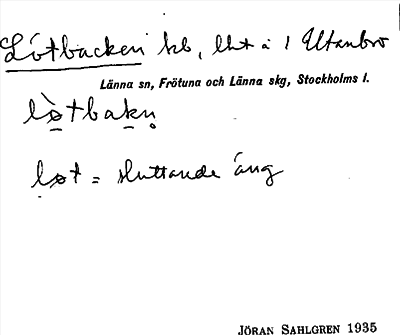 Lötbacken hb, lht å 1 Utanbro
Länna sn, Frötuna och Länna skg, Stockholms l.
lø̀tbakn̥
løt = sluttande äng
JÖRAN SAHLGREN 1935